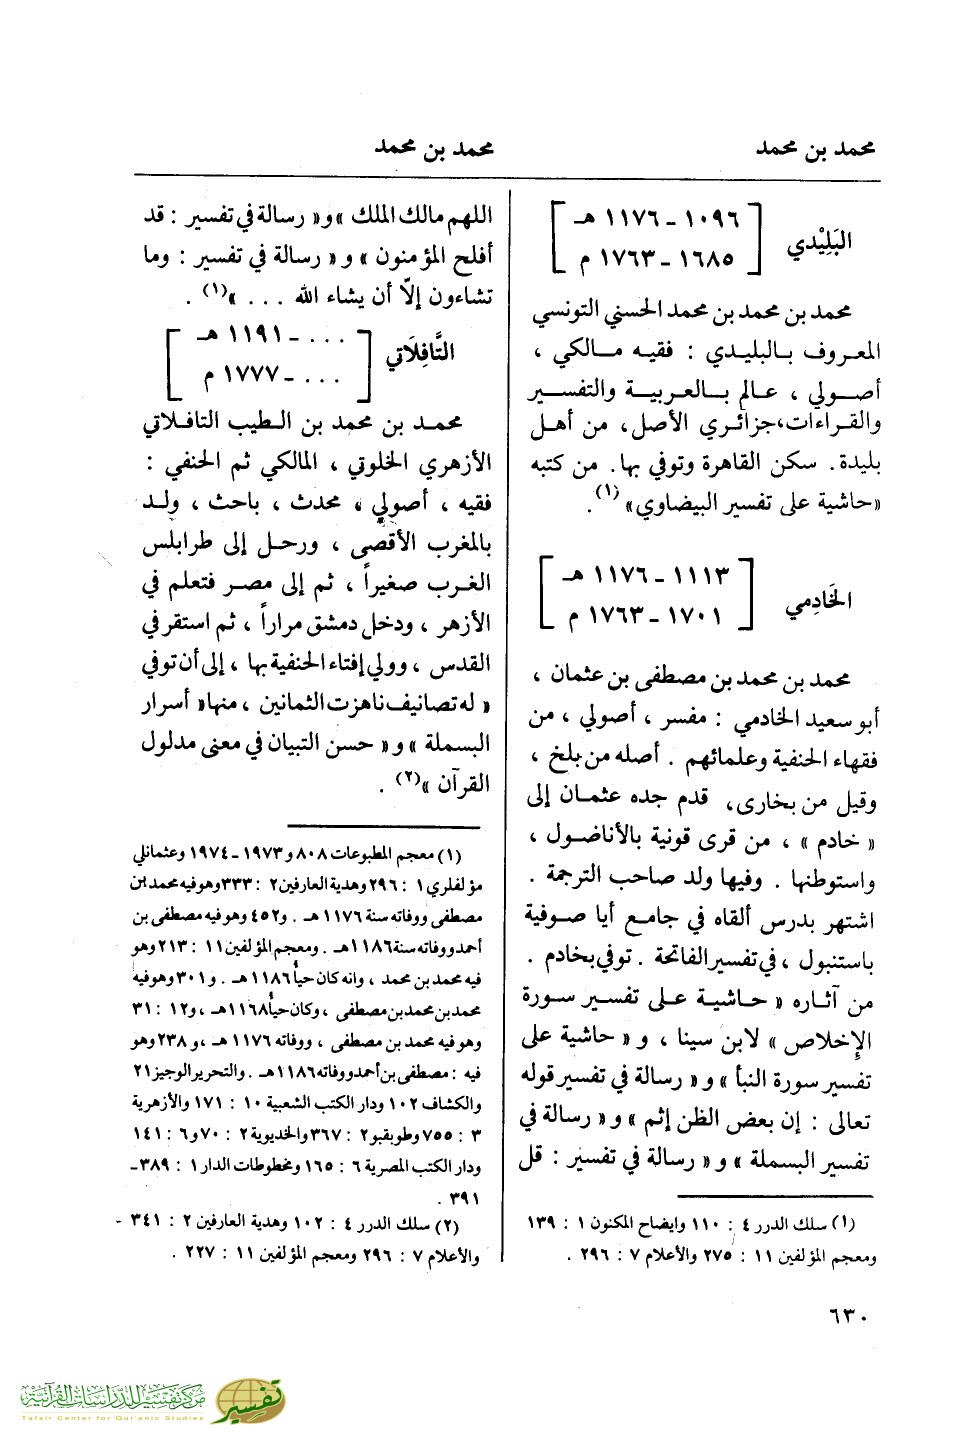 محمد بن محمد
محمد بن محمد
البَلِيْدي
١٠٩٦ - ١١٧٦ هـ
١٦٨٥ - ١٧٦٣ م
محمد بن محمد بن محمد الحسني التونسي
المعروف بالبليدي : فقيه مالكي ،
أصولي ، عالم بالعربية والتفسير
والقراءات، جزائري الأصل، من أهل
بليدة. سكن القاهرة وتوفي بها. من كتبه
«حاشية على تفسير البيضاوي» (١).
الخَادِمي
١١١٣ - ١١٧٦ هـ
١٧٠١ - ١٧٦٣ م
محمد بن محمد بن مصطفى بن عثمان ،
أبو سعيد الخادمي : مفسر ، أصولي ، من
فقهاء الحنفية وعلمائهم . أصله من بلخ ،
وقيل من بخارى، قدم جده عثمان إلى
« خادم » ، من قرى قونية بالأناضول ،
واستوطنها . وفيها ولد صاحب الترجمة .
اشتهر بدرس ألقاه في جامع أيا صوفية
باستنبول ، في تفسير الفاتحة . توفي بخادم .
من آثاره « حاشية على تفسير سورة
الإخلاص » لابن سينا ، و « حاشية على
تفسير سورة النبأ » و « رسالة في تفسير قوله
تعالى : إن بعض الظن إثم » و « رسالة في
تفسير البسملة » و « رسالة في تفسير : قل
(١) سلك الدرر ٤ : ١١٠ وايضاح المكنون ١ : ١٣٩
ومعجم المؤلفين ١١ : ٢٧٥ والأعلام ٧ : ٢٩٦ .
اللهم مالك الملك » و « رسالة في تفسير : قد
أفلح المؤمنون » و « رسالة في تفسير : وما
تشاءون إلاّ أن يشاء الله . . . »(١) .
التَّافِلَاتي
. . . - ١١٩١ هـ
. . . - ١٧٧٧ م
محمد بن محمد بن الطيب التافلاتي
الأزهري الخلوتي ، المالكي ثم الحنفي :
فقيه ، أصولي ، محدث ، باحث ، ولد
بالمغرب الأقصى ، ورحل إلى طرابلس
الغرب صغيراً ، ثم إلى مصر فتعلم في
الأزهر ، ودخل دمشق مراراً ، ثم استقر في
القدس ، وولي إفتاء الحنفية بها ، إلى أن توفي
« له تصانيف ناهزت الثمانين ، منها « أسرار
البسملة » و « حسن التبيان في معنى مدلول
القرآن »(٢) .
(١) معجم المطبوعات ٨٠٨ و ١٩٧٣ - ١٩٧٤ وعثمانلي
مؤلفلري ١ : ٢٩٦ وهدية العارفين ٢ : ٣٣٣ وهو فيه محمد بن
مصطفى ووفاته سنة ١١٧٦ هـ . و٤٥٢ وهو فيه مصطفى بن
أحمد ووفاته سنة ١١٨٦ هـ . ومعجم المؤلفين ١١ : ٢١٣ وهو
فيه محمد بن محمد ، وانه كان حياً ١١٨٦ هـ . و٣٠١ وهو فيه
محمد بن محمد بن مصطفى ، وكان حياً ١١٦٨ هـ ، و١٢ : ٣١
وهو فيه محمد بن مصطفى ، ووفاته ١١٧٦ هـ ، و ٢٣٨ وهو
فيه : مصطفى بن أحمد ووفاته ١١٨٦ هـ . والتحرير الوجيز ٢١
والكشاف ١٠٢ ودار الكتب الشعبية ١٠ : ١٧١ والأزهرية
٣ : ٧٥٥ وطوبقبو ٢ : ٣٦٧ والخديوية ٢ : ٧٠ و٦ : ١٤١
ودار الكتب المصرية ٦ : ١٦٥ ومخطوطات الدار ١ : ٣٨٩ -
٣٩١ .
(٢) سلك الدرر ٤ : ١٠٢ وهدية العارفين ٢ : ٣٤١ -
والأعلام ٧ : ٢٩٦ ومعجم المؤلفين ١١ : ٢٢٧ .
٦٣٠
مركز تفسير للدراسات القرآنية
Tafsir Center for Qur'anic Studies
تفسير